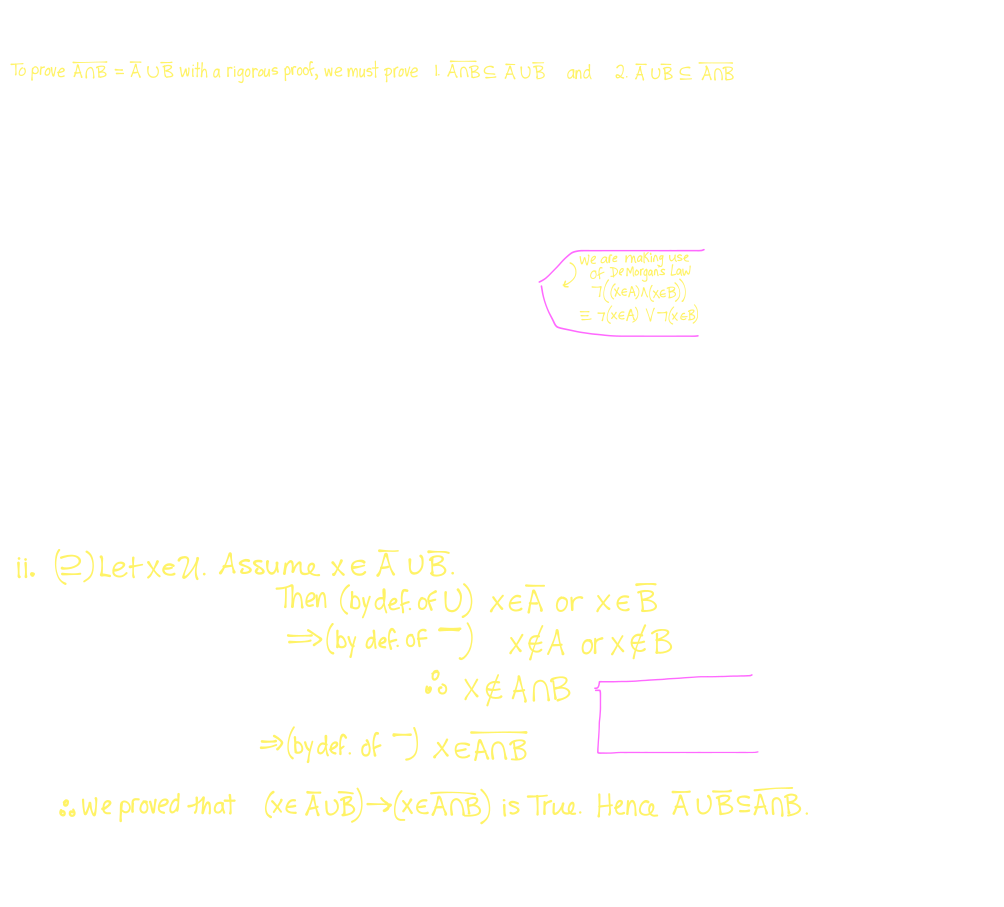 To prove A̅∩̅B̅ = A̅ ∪ B̅ with a rigorous proof, we must prove 1. A̅∩̅B̅ ⊆ A̅ ∪ B̅ and 2. A̅ ∪ B̅ ⊆ A̅∩̅B̅
We are making use
of De Morgan's Law
¬((x∈A)∧(x∈B))
≡ ¬(x∈A) ∨ ¬(x∈B)
ii. (⊇) Let x∈U. Assume x ∈ A̅ ∪ B̅.
Then (by def. of ∪) x∈A̅ or x∈B̅
⇒(by def. of ‾) x∉A or x∉B
∴ x∉A∩B
⇒(by def. of ‾) x∈A̅∩̅B̅
∴ We proved that (x∈A̅∪B̅)→(x∈A̅∩̅B̅) is True. Hence A̅∪B̅⊆A̅∩̅B̅.